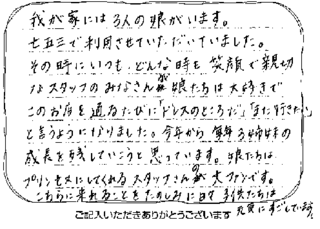 我が家には3人の娘がいます。
七五三で利用させていただいていました。
その時にいつも、どんな時も笑顔で親切
なスタッフのみなさんが娘たちは大好きで
このお店を通るたびに「ドレスのところだ」「また行きたい」
と言うようになりました。今年から毎年3姉妹の
成長を残していこうと思っています。娘たちは
プリンセスにしてくれるスタッフさんの大ファンです。
こちらに来れることをたのしみに日々子供たちは
元気にすごしています。
ご記入いただきありがとうございます